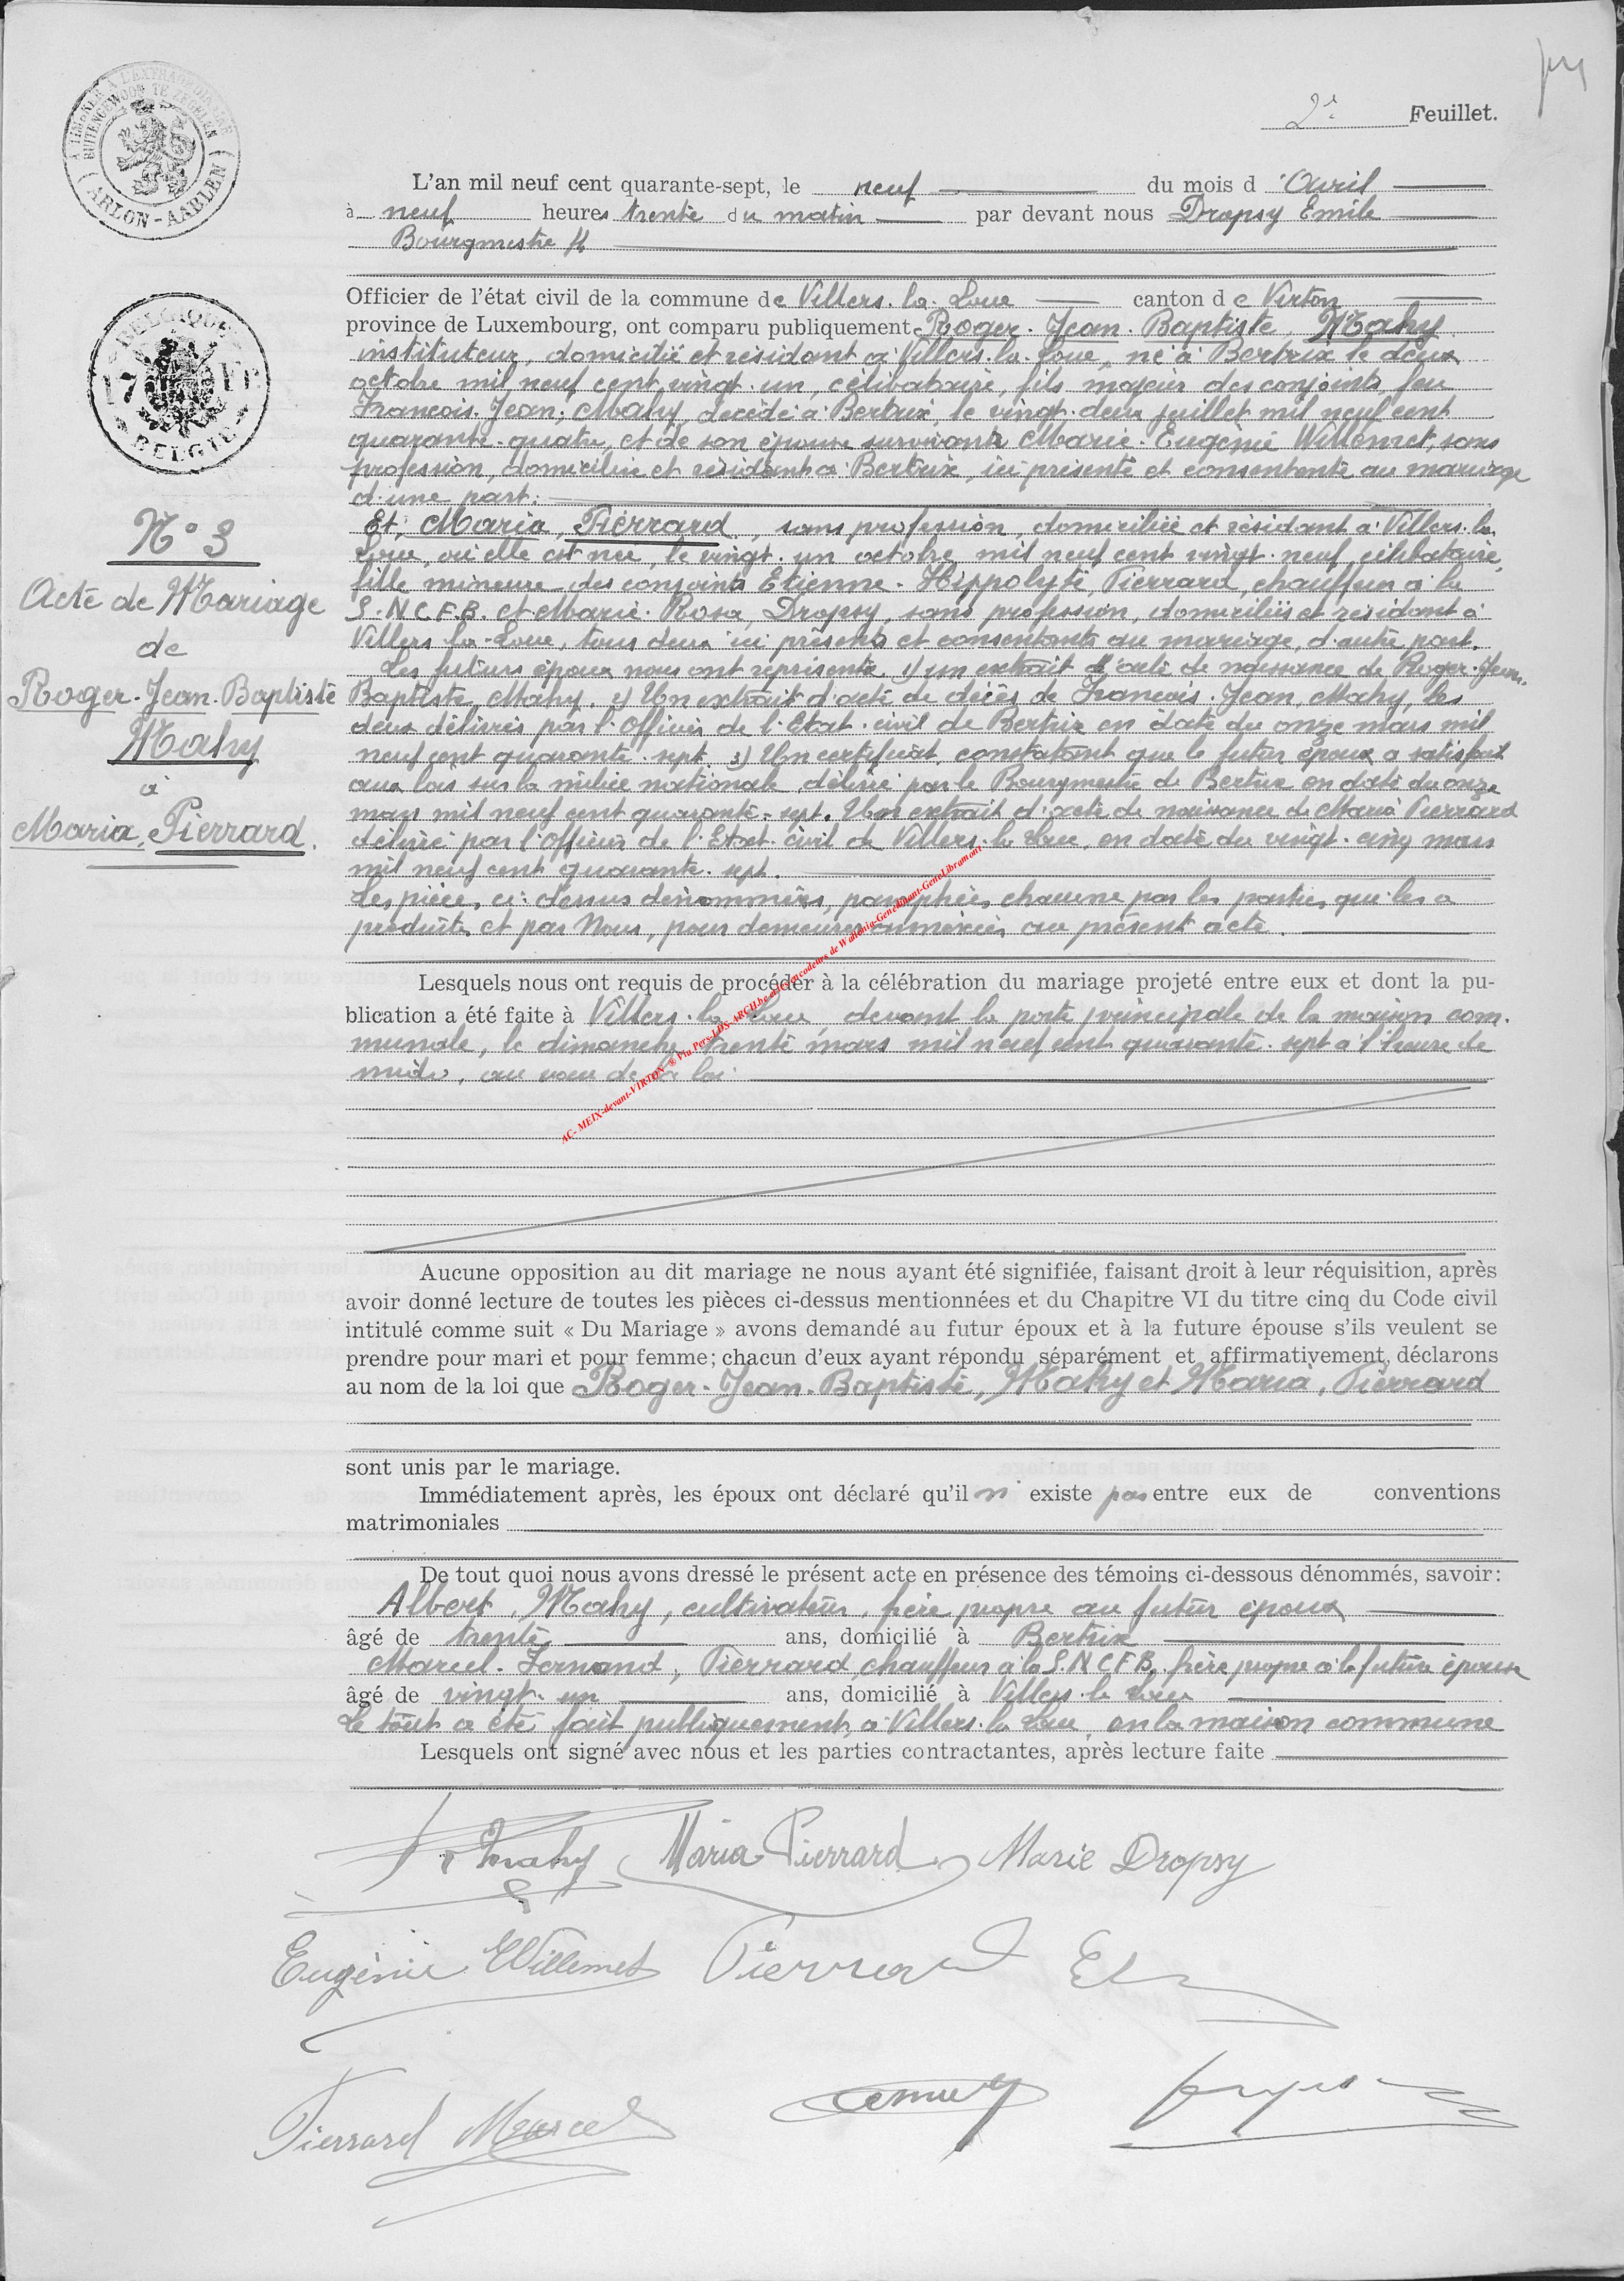 2e Feuillet.
A TIMBRER A L'EXTRAORDINAIRE
BUITENGEWOON TE ZEGELEN
ARLON-AARLEN
L'an mil neuf cent quarante-sept, le neuf du mois d 'Avril
à neuf heures trente du matin par devant nous Dropsy Emile
Bourgmestre
BELGIQUE
17
BELGIE
Officier de l'état civil de la commune de Villers-la-Loue canton de Virton
province de Luxembourg, ont comparu publiquement Roger-Jean-Baptiste, Mahy
instituteur, domicilié et résidant à Villers-la-Loue, né à Bertrix le deux
octobre mil neuf cent vingt-un, célibataire, fils majeur des conjoints, feu
François-Jean, Mahy, décédé à Bertrix, le vingt-deux juillet mil neuf cent
quarante-quatre, et de son épouse survivante Marie-Eugénie Willemet, sans
profession, domiciliée et résidant à Bertrix, ici présente et consentente au mariage
d'une part.
Et, Maria, Pierrard, sans profession, domiciliée et résidant à Villers-la-
Loue, où elle est née, le vingt-un octobre mil neuf cent vingt-neuf, célibataire,
fille mineure des conjoints Etienne-Hippolyte, Pierrard, chauffeur à la
S.N.C.F.B. et Marie-Rosa, Dropsy, sans profession, domiciliés et résidant à
Villers-la-Loue, tous deux ici présents et consentants au mariage, d'autre part.
Les futurs époux nous ont représenté 1) un extrait d'acte de naissance de Roger-Jean-
Baptiste, Mahy. 2) Un extrait d'acte de décès de François-Jean, Mahy, les
deux délivrés par l'Officier de l'Etat-civil de Bertrix en date du onze mars mil
neuf cent quarante-sept. 3) Un certificat constatant que le futur époux a satisfait
aux lois sur la milice nationale, délivré par le Bourgmestre de Bertrix en date du onze
mars mil neuf cent quarante-sept. Un extrait d'acte de naissance de Maria Pierrard
délivré par l'Officier de l'Etat-civil de Villers-la-Loue, en date du vingt-cinq mars
mil neuf cent quarante-sept.
Les pièces ci-dessus dénommées, paraphées chacune par les parties qui les a
produites et par Nous, pour demeurer annexées au présent acte.
N° 3
Acte de Mariage
de
Roger-Jean-Baptiste
Mahy
à
Maria, Pierrard.
AC- MEIX-devant-VIRTON ® Via Pers-LDS-ARCH.be et les encodeurs de Wallonia-Genedinant-GeneLibramont
Lesquels nous ont requis de procéder à la célébration du mariage projeté entre eux et dont la pu-
blication a été faite à Villers-la-Loue, devant la porte principale de la maison com-
munale, le dimanche trente mars mil neuf cent quarante-sept à l'heure de
midi, au vœu de la loi.
Aucune opposition au dit mariage ne nous ayant été signifiée, faisant droit à leur réquisition, après
avoir donné lecture de toutes les pièces ci-dessus mentionnées et du Chapitre VI du titre cinq du Code civil
intitulé comme suit « Du Mariage » avons demandé au futur époux et à la future épouse s'ils veulent se
prendre pour mari et pour femme; chacun d'eux ayant répondu séparément et affirmativement, déclarons
au nom de la loi que Roger-Jean-Baptiste, Mahy et Maria, Pierrard
sont unis par le mariage.
Immédiatement après, les époux ont déclaré qu'il n' existe pas entre eux de conventions
matrimoniales
De tout quoi nous avons dressé le présent acte en présence des témoins ci-dessous dénommés, savoir:
Albert, Mahy, cultivateur, frère propre au futur époux
âgé de trente ans, domicilié à Bertrix
Marcel-Fernand, Pierrard, chauffeur à la S.N.C.F.B., frère propre à la future épouse
âgé de vingt-un ans, domicilié à Villers-la-Loue
Le tout a été fait publiquement, à Villers-la-Loue, en la maison commune
Lesquels ont signé avec nous et les parties contractantes, après lecture faite
Mahy Maria Pierrard Marie Dropsy
Eugénie Willemet Pierrard Et
Pierrard Marcel